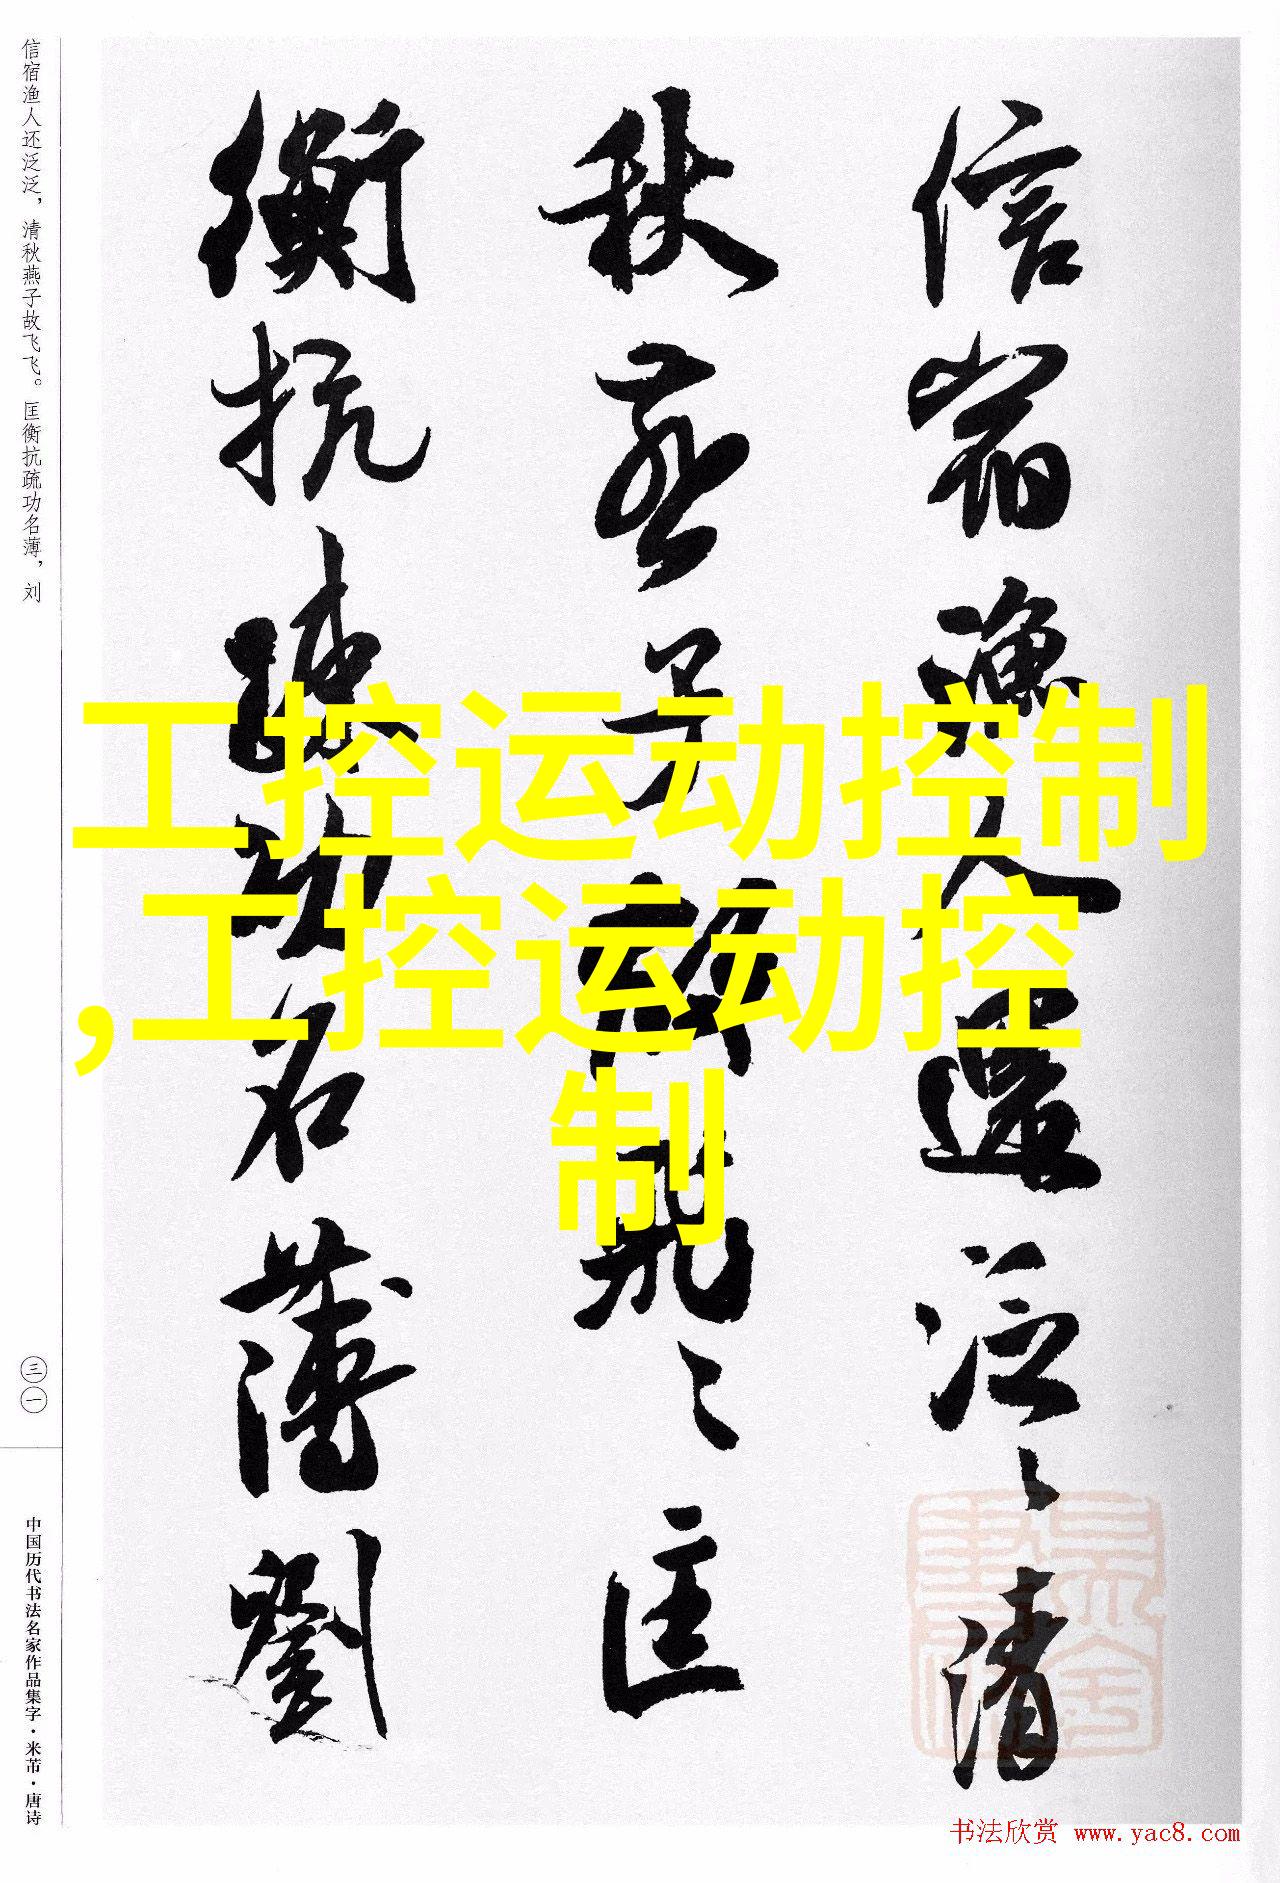 信宿渔人还泛泛，清秋燕子故飞飞。匡衡抗疏功名薄，刘
信宿漁人還泛々清
秋燕子故飛々匡
衡抗疏功名薄劉
工控运动控制
,工控运动控
制
三一
中国历代书法名家作品集字·米芾·唐诗
书法欣赏 www.yac8.com